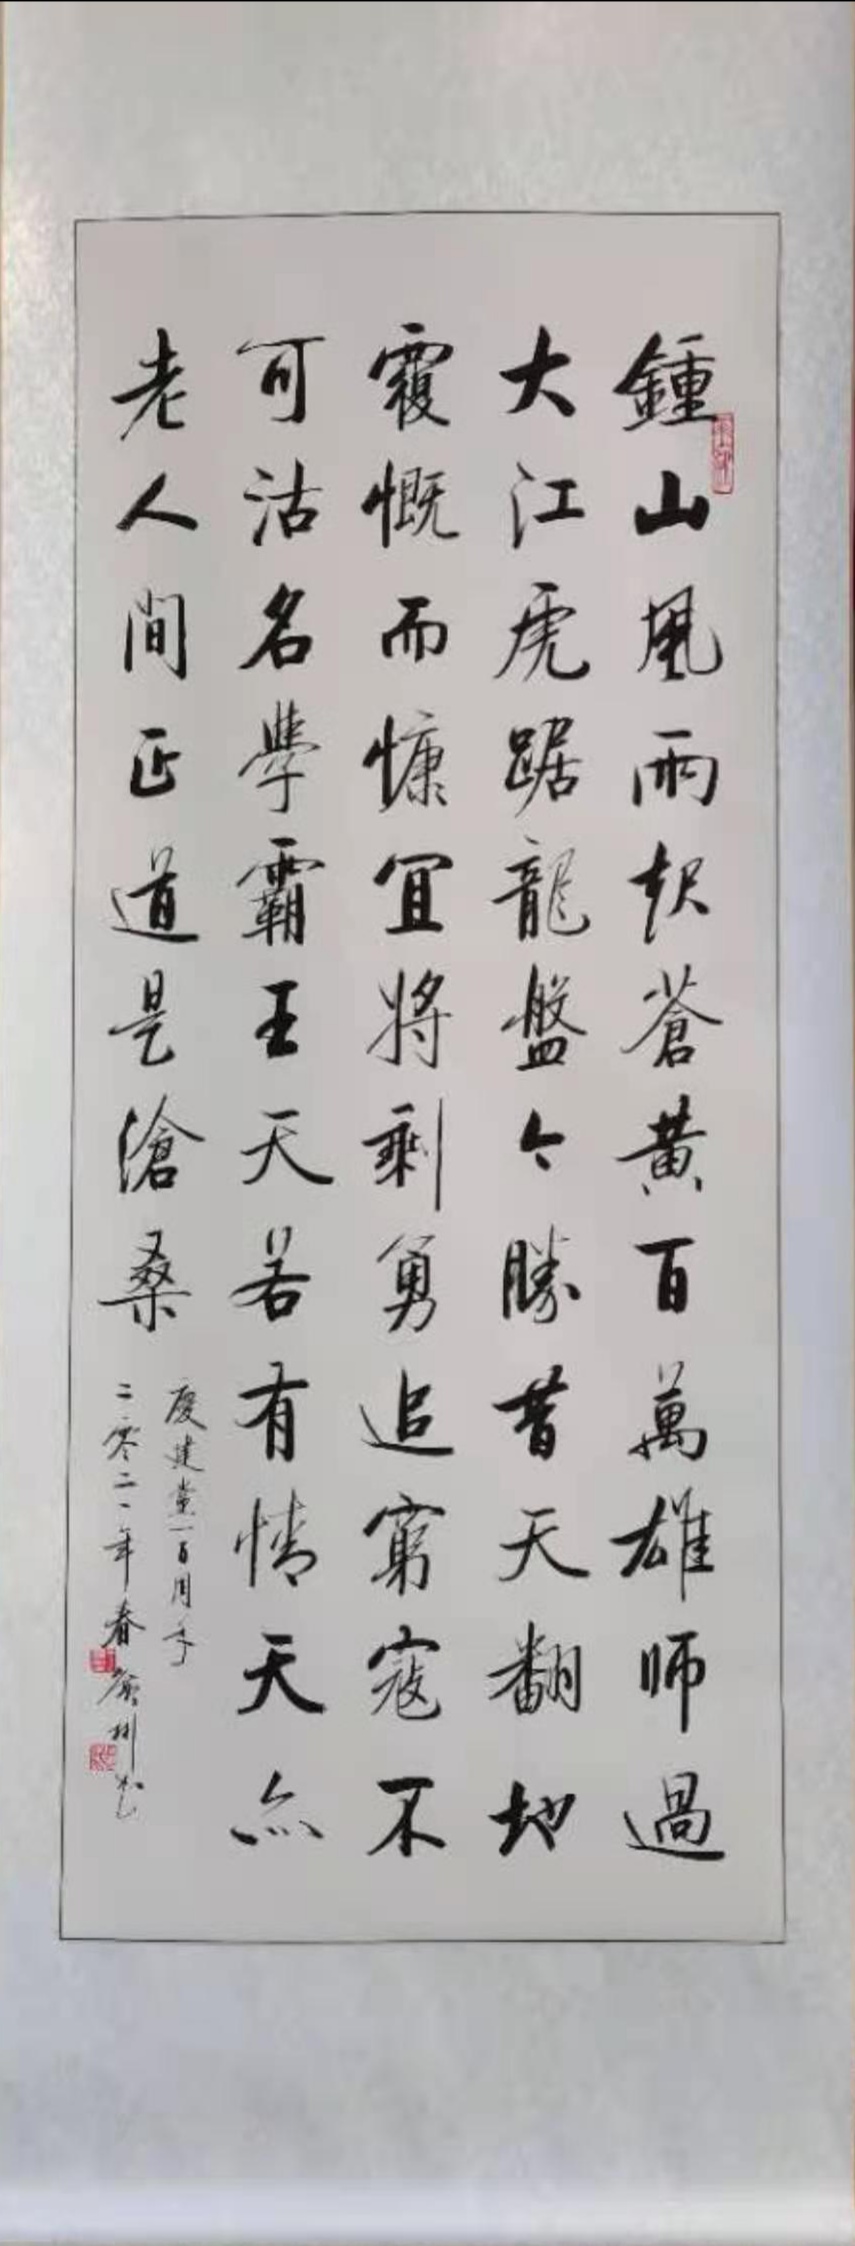 鍾山風雨起蒼黄百萬雄師過
大江虎踞龍盤今勝昔天翻地
覆慨而慷宜將剩勇追窮寇不
可沽名學霸王天若有情天亦
老人間正道是滄桑
慶建黨一百周年
二零二一年春